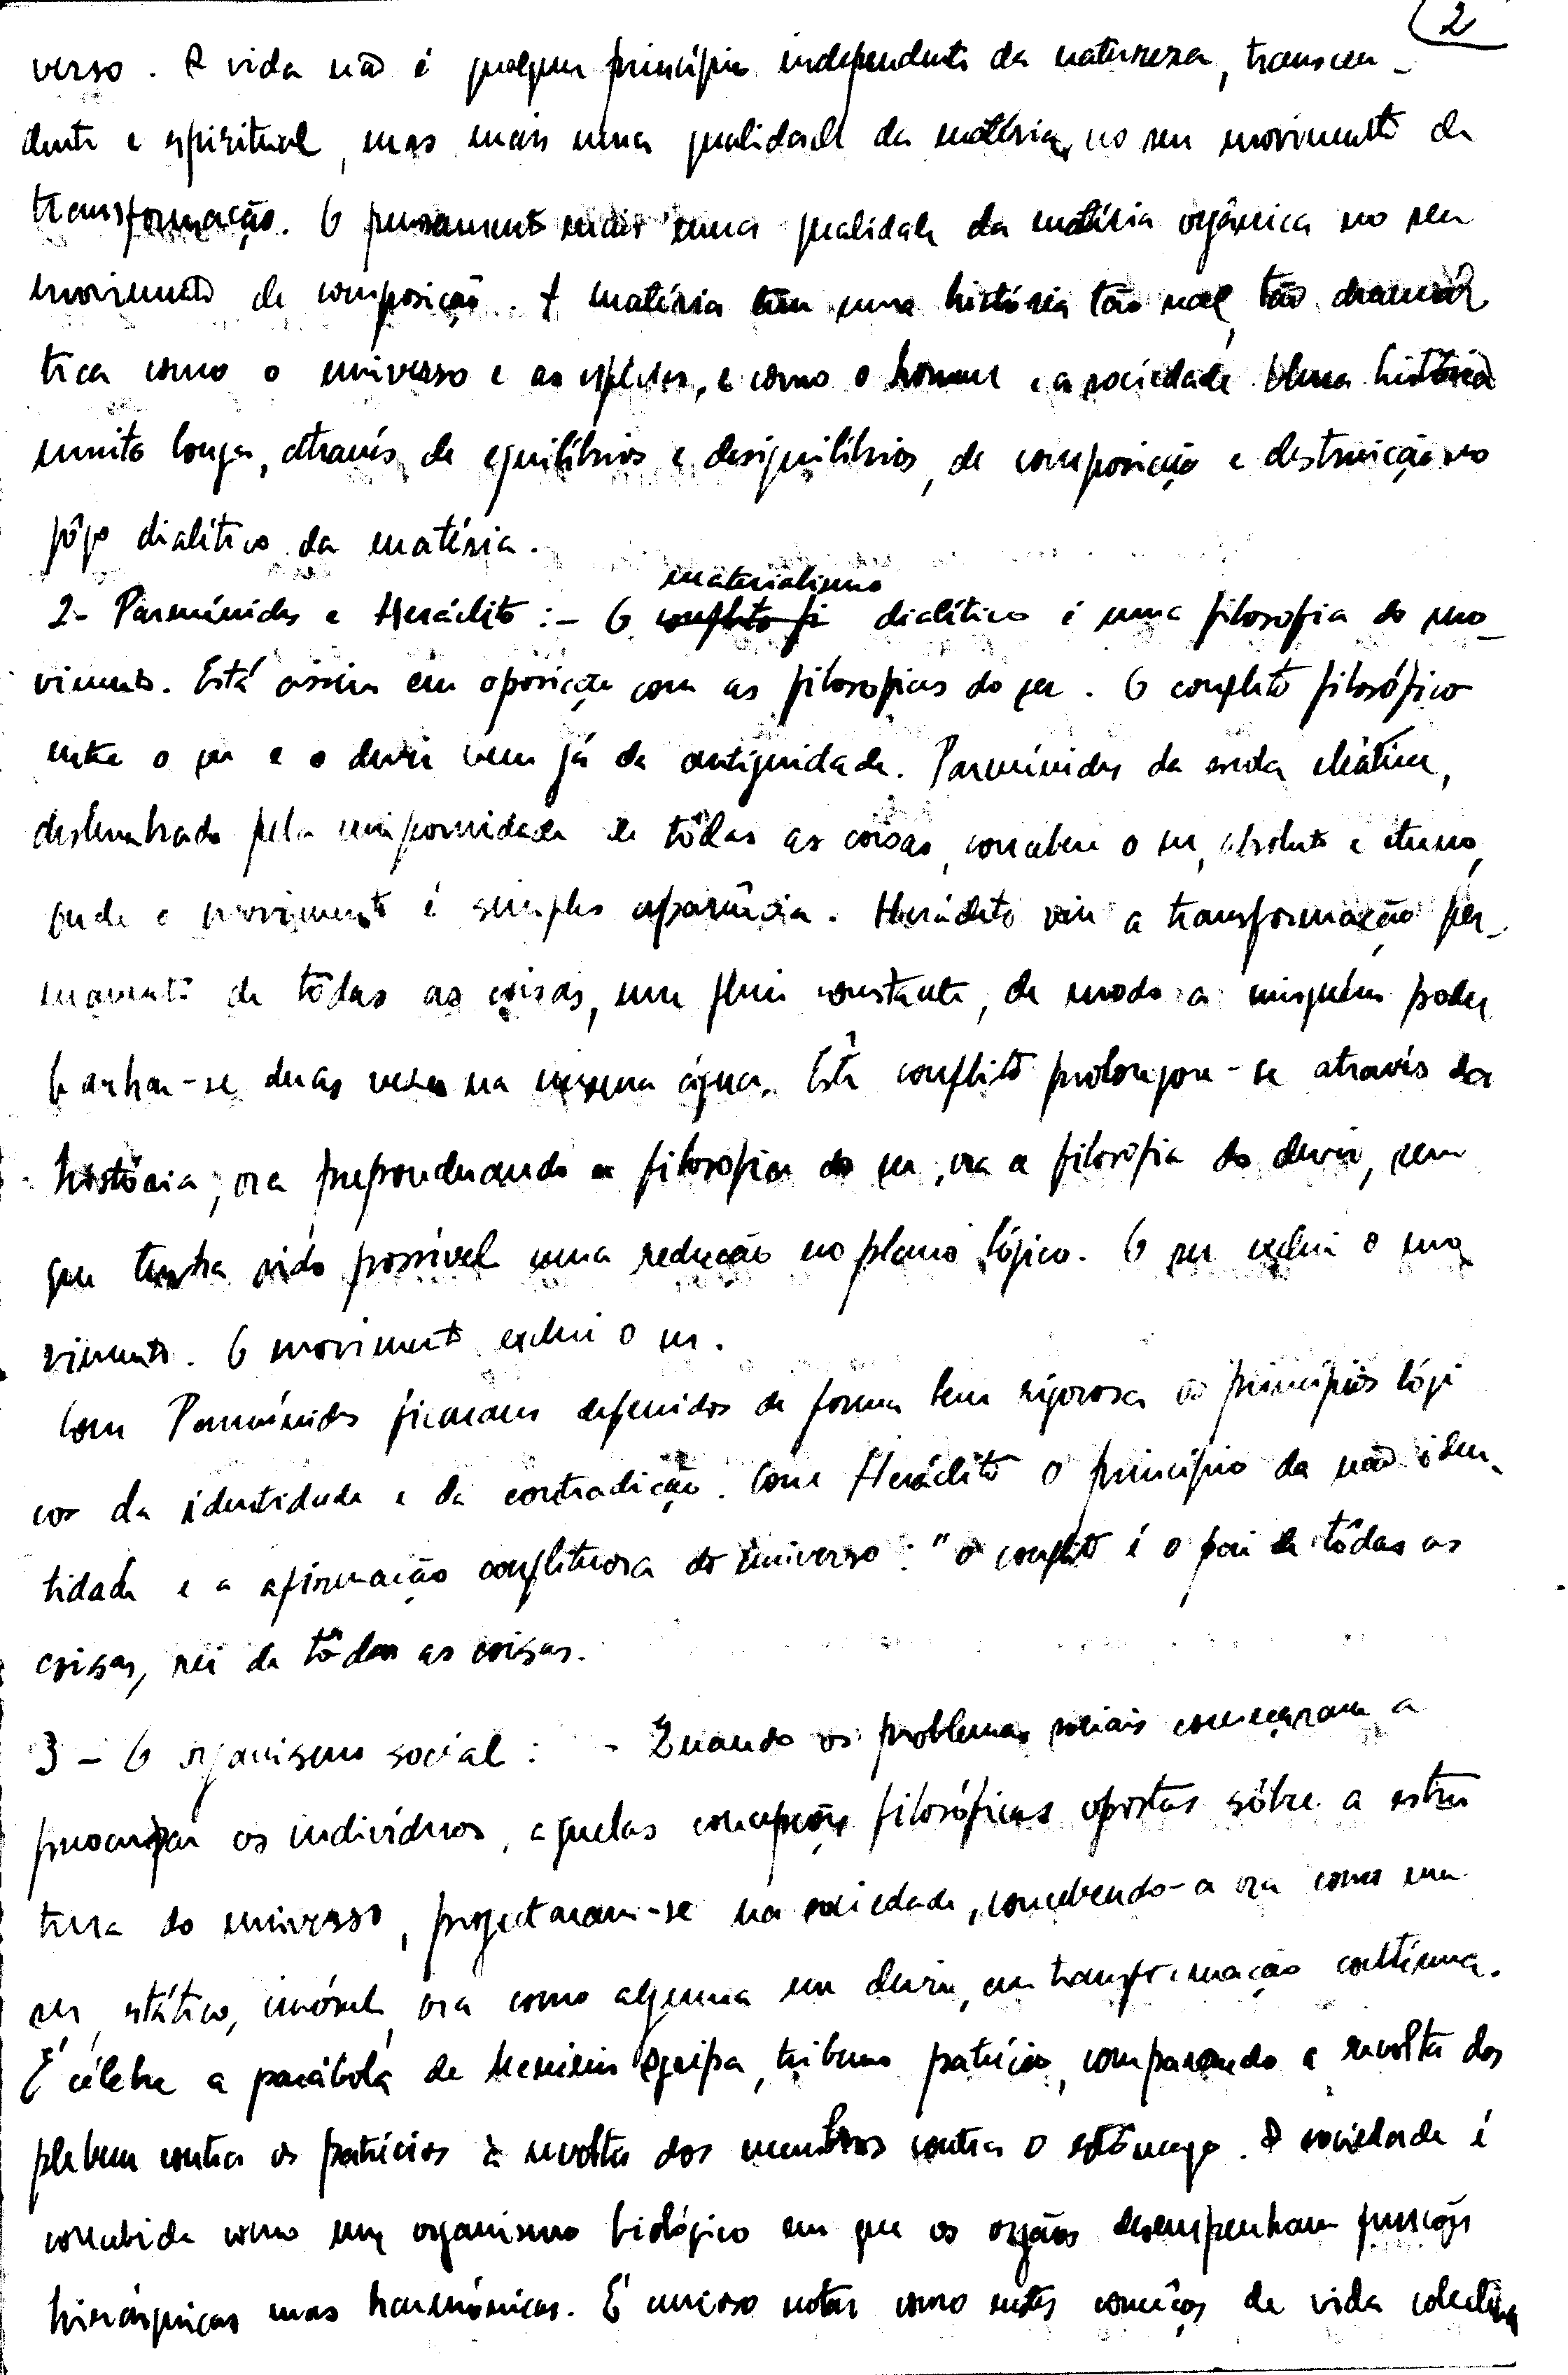 2
verso. A vida não é qualquer princípio independente da natureza, transcen-
dente e espiritual, mas mais uma qualidade da matéria, no seu movimento de
transformação. O pensamento mais uma qualidade da matéria orgânica no seu
movimento de composição. A matéria tem uma história tão real, tão dramá
tica como o universo e as espécies, e como o homem e a sociedade. Uma história
muito longa, através de equilíbrios e desiquilíbrios, de composição e destruição no
jôgo dialético da matéria.
materialismo
2- Parménides e Heráclito :- O conflito fi dialético é uma filosofia do mo-
vimento. Está assim em oposição com as filosofias do ser. O conflito filosófico
entre o ser e o devir vem já da antiguidade. Parménides da escola eleática,
deslumbrado pela uniformidade de tôdas as coisas, concebeu o ser, absoluto e eterno,
onde o movimento é simples aparência. Heráclito viu a transformação per-
manente de tôdas as coisas, um fluir constante, de modo a ninguém poder
banhar-se duas vezes na mesma água. Êste conflito prolongou-se através da
história, ora preponderando a filosofia do ser, ora a filosofia do devir, sem
que tenha sido possível uma redução no plano lógico. O ser exclui o mo
vimento. O movimento exclui o ser.
Com Parménides ficaram definidos de forma bem rigorosa os princípios lógi
cos da identidade e da contradição. Com Heráclito o princípio da não iden-
tidade e a afirmação conflituosa do universo: "o conflito é o pai de tôdas as
coisas, rei de tôdas as coisas.
3 - O organismo social : - Quando os problemas sociais começaram a
preocupar os indivíduos, aquelas concepções filosóficas opostas sôbre a estru
tura do universo, projectaram-se na sociedade, concebendo-a ora como um
ser, estático, imóvel, ora como algo em devir, em transformação contínua.
É célebre a parábola de Menénio Agripa, tribuno patrício, comparando a revolta dos
plebeus contra os patrícios à revolta dos membros contra o estômago. A sociedade é
concebida como um organismo biológico em que os orgãos desempenham funções
hierárquicas mas harmónicas. É curioso notar como nestes comêços de vida colectiva